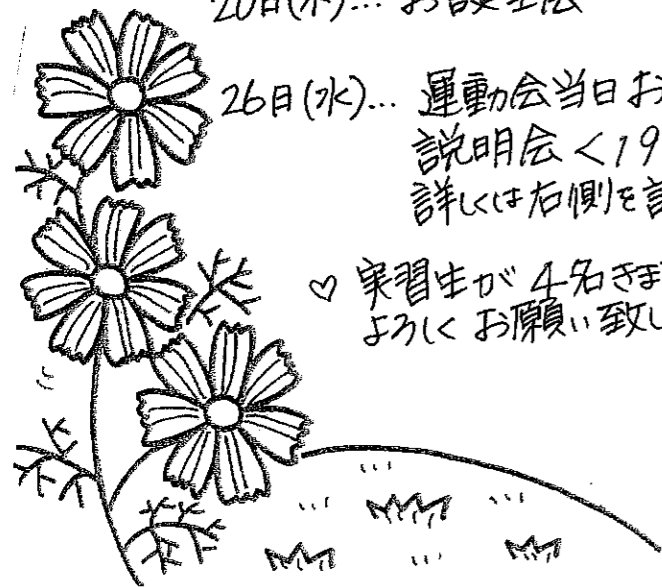 20日(木)... お誕生会
26日(水)... 運動会当日お
説明会 <19
詳しくは右側を
♡ 実習生が 4名きま
よろしく お願い致し